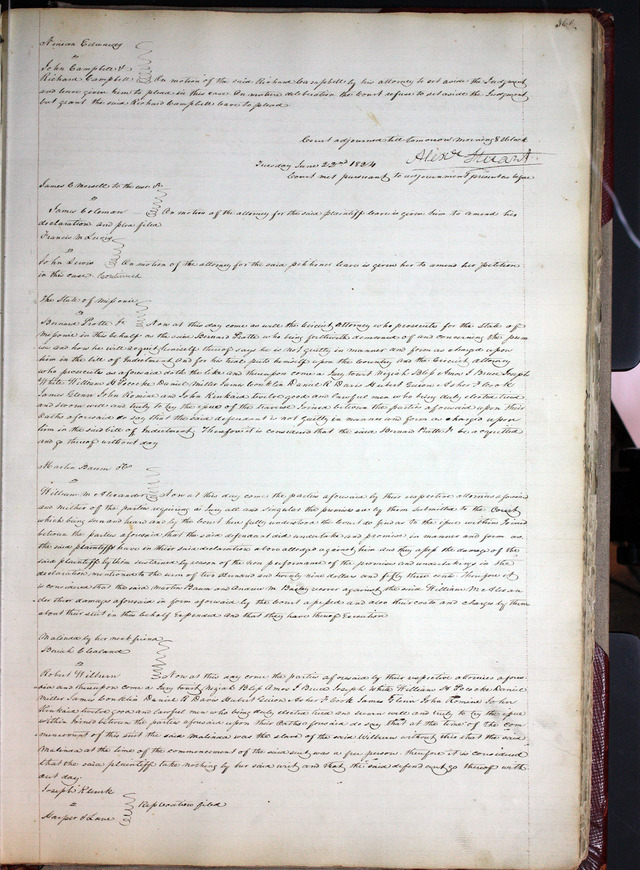 John Campbell &
Richard Campbell On motion of the said Richard Campbell by his attorney to set aside the Judgment
and leave given him to plead in this case On mature deliberation the Court refuse to set aside the Judgment
but grant the said Richard Campbell leave to plead
Court adjourned till tomorrow morning 8 oClock
Alexr Stuart
Tuesday June 22nd 1824
Court met pursuant to adjournment present as before
James C Morsell to the use &c
vs
James Coleman On motion of the attorney for the said plaintiff leave is given him to amend his
declaration and plea filed
Francis M Lewis
vs
John Lewis On motion of the attorney for the said petitioner leave is given her to amend her petition
in this case Continued
The State of Missouri
vs
Bernard Pratte Jr Now at this day come as well the Circuit Attorney who prosecutes for the State of
Missouri in this behalf as the said Bernard Pratte who being forthwith demanded of and concerning the premises
and how he will acquit himself thereof says he is not guilty in manner and form as charged upon
him in the bill of Indictment And for his trial puts himself upon the Country and the Circuit Attorney
who prosecutes as aforesaid doth the like and thereupon came a Jury towit Neziah Bliss Amos J Bruce Joseph
White William H Pococke Daniel Miller James Conklin Daniel R Davis Hubert Guion Asher F Cook
James Glenn John Romine and John Kinkaid twelve good and lawful men who being duly elected tried
and sworn well and truly to try the issue of the traverse Joined between the parties aforesaid upon their
Oaths aforesaid do say that the said defendant is not guilty in manner and form as charged upon
him in the said bill of Indictment Therefore it is considered that the said Bernard Pratte Jr be acquitted
and go thereof without day
Martin Baum &c
vs
William McAlexander Now at this day come the parties aforesaid by their respective attornies aforesaid
and neither of the parties requiring a Jury all and singular the premises are by them submitted to the Court
which being seen and heard and by the Court here fully understood the Court do find as to the issue within Joined
between the parties aforesaid that the said defendant did undertake and promise in manner and form as
the said plaintiffs have in their said declaration above alledged against him and they assess the damage of the
said plaintiffs by them sustained by reason of the non performance of the promises and undertakings in the
declaration mentioned to the sum of two thousand and twenty nine dollars and fifty three cents Therefore it
is considered that the said Martin Baum and Andrew M Bailey recover against the said William McAlexan
der their damages aforesaid in form aforesaid by the Court assessed and also their costs and charges by them
about their suit in this behalf expended and that they have thereof Execution
Malinda by her next friend
Isaiah Clealand
vs
Robert Wilburn Now at this day come the parties aforesaid by their respective attornies afore
said and thereupon come a Jury towit Neziah Bliss Amos J Bruce Joseph White William H Pococke Daniel
Miller James Conklin Daniel R Davis Hubert Guion Asher F Cook James Glenn John Romine John
Kinkaid twelve good and lawful men who being duly elected tried and sworn well and truly to try the issue
within Joined between the parties aforesaid upon their Oaths aforesaid do say that at the time of the Com
mencement of this suit the said Malinda was the slave of the said Wilburn without this that the said
Malinda at the time of the commencement of the said suit was a free person Therefore it is considered
that the said plaintiff take nothing by her said writ and that the said defendant go thereof with
out day
Joseph Klunk
vs
Replication filed
Harper & Lane